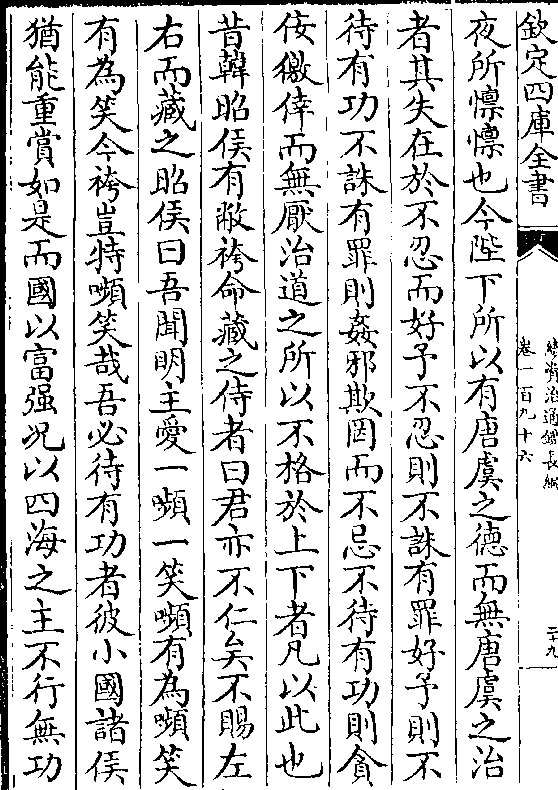 欽定四庫全書
續資治通鑑長編
卷一百九十六
二十九
夜所懍懍也今陛下所以有唐虞之德而無唐虞之治
者其失在於不忍而好予不忍則不誅有罪好予則不
待有功不誅有罪則姦邪欺罔而不忌不待有功則貪
佞徼倖而無厭治道之所以不格於上下者凡以此也
昔韓昭侯有敝袴命藏之侍者曰君亦不仁矣不賜左
右而藏之昭侯曰吾聞明主愛一嚬一笑嚬有為嚬笑
有為笑今袴豈特嚬笑哉吾必待有功者彼小國諸侯
猶能重賞如是而國以富强况以四海之主不行無功